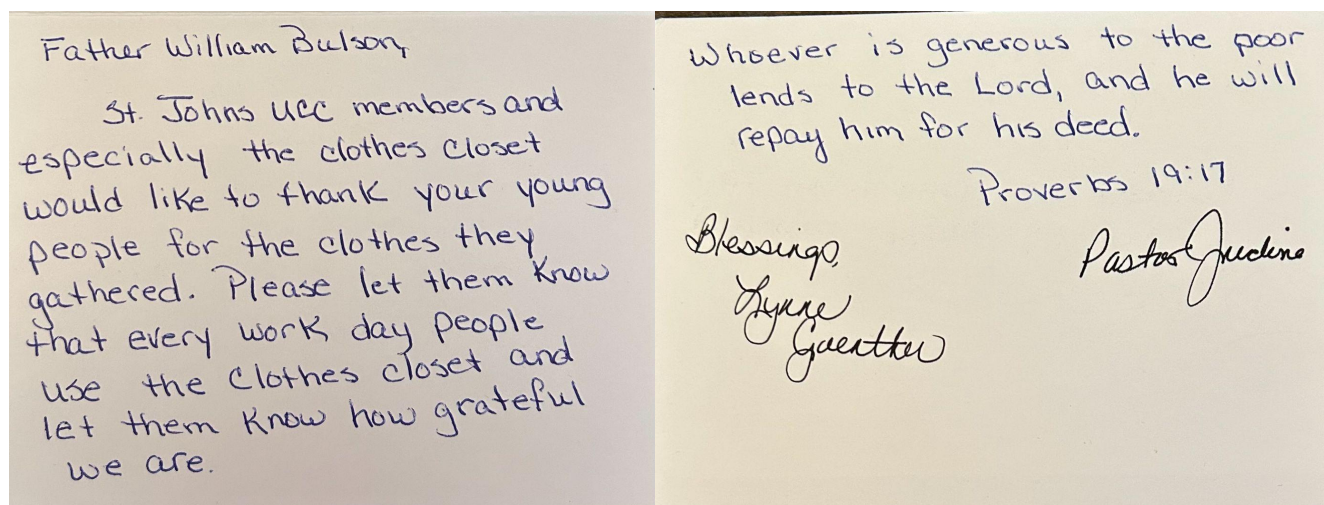 Father William Bulson,
St. Johns UCC members and
especially the clothes closet
would like to thank your young
people for the clothes they
gathered. Please let them know
that every work day people
use the clothes closet and
let them know how grateful
we are.
Whoever is generous to the poor
lends to the Lord, and he will
repay him for his deed.
Proverbs 19:17
Blessings,
Pastor Judine
Lynne
Guenther